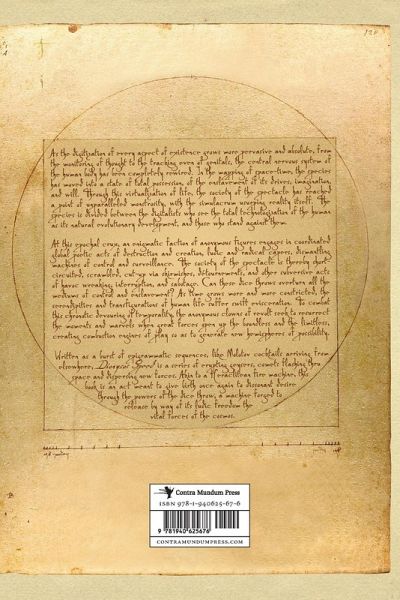 As the digitization of every aspect of existence grows more pervasive and absolute, from
the monitoring of thought to the tracking even of genitals, the central nervous system of
the human body has been completely rewired. In the mapping of space-time, the species
has moved into a state of total possession, of the enslavement of its drives, imagination,
and will. Through this virtualization of life, the society of the spectacle has reached
a point of unparalleled monstrosity, with the simulacrum usurping reality itself. The
species is divided between the digitalists who see the total technologization of the human
as its natural evolutionary development, and those who stand against them.
At this epochal crux, an enigmatic faction of anonymous figures engages in coordinated
global poetic acts of destruction and creation, ludic and radical capers, dismantling
machines of control and surveillance. The society of the spectacle is thereby short-
circuited, scrambled, cut-up via skirmishes, détournements, and other subversive acts
of havoc wreaking, interruption, and sabotage. Can these dice throws overturn all the
mediums of control and enslavement? As time grows more and more constricted, the
serendipities and transfigurations of human life suffer swift evisceration. To combat
this chronotic devouring of temporality, the anonymous clowns of revolt seek to resurrect
the moments and marvels when great forces open up the boundless and the limitless,
creating combustion engines of play so as to generate new hemispheres of possibility.
Written as a burst of epigrammatic sequences, like Molotov cocktails arriving from
elsewhere, Dionysos Speed is a series of erupting geysers, comets flashing thru
space and dispersing new forces. Akin to a Heraclitean fire machine, this
book is an act meant to give birth once again to dissonant desire
through the powers of the dice throw, a machine forged to
release by way of its ludic freedom the
vital forces of the cosmos.
Contra Mundum Press
ISBN 978-1-940625-67-6
9 781940 625676
CONTRAMUNDUMPRESS.COM